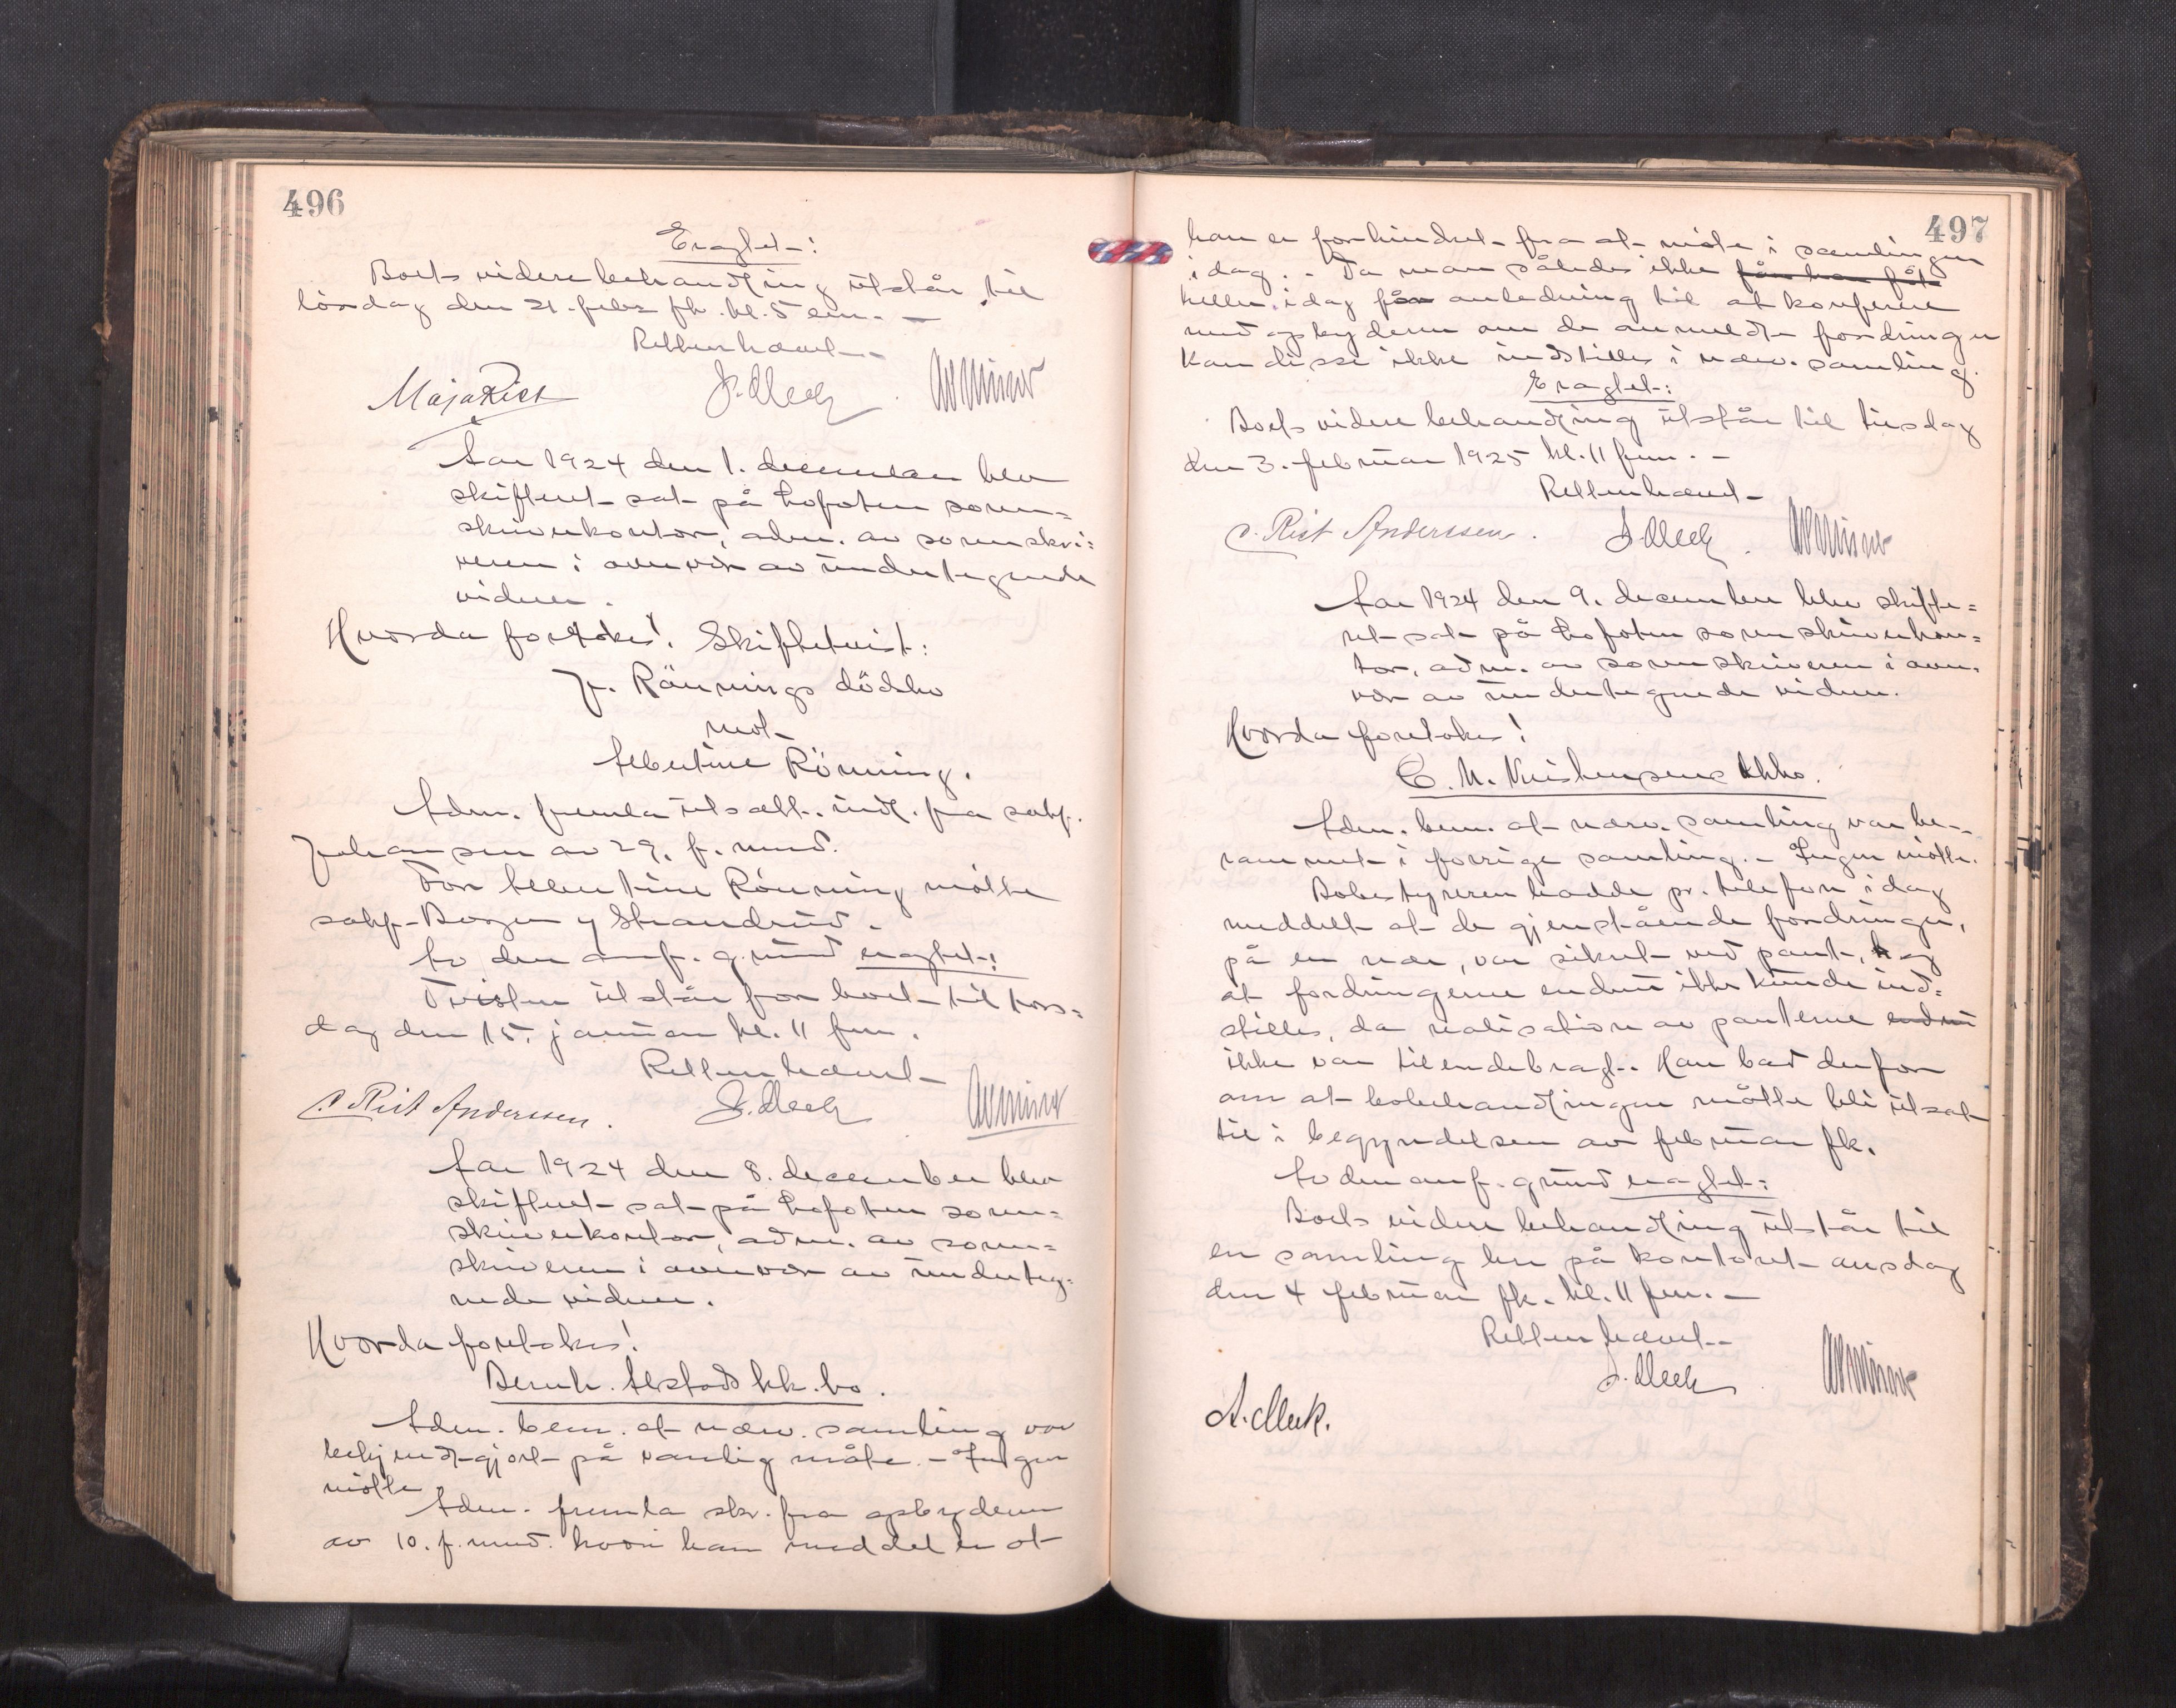 496
Eragtet:
Boets videre behandling utstår til
lördag den 21. febr fk. kl. 5 em. —
Retten hævet.-
Maja Rist J. Meek
Aar 1924 den 1. december blev
skifteret sat på Lofoten soren=
skriverkontor, adm. av sorenskri=
veren i overvær av undertegnede
vidner.
Hvorda foretokes! Skiftetvist:
Rönnings dödsbo
mot
Albertine Rönning.
Adm. fremla utsætt. indl. fra sakf.
Johansen av 29. f. mnd.
For Albertine Rönning mötte
sakf. Borgen y Strandrud.
Av den anf. grund eragtet:
Tvisten utstår for boet til tors=
dag den 15. januar kl. 11 fm.
Retten hævet
C. Rist Anderssen. J. Meek
Aar 1924 den 8. december blev
skifteret sat på Lofoten soren=
skriverkontor, adm. av soren=
skriveren i overvær av underteg=
nede vidner.
Hvorda foretokes!
Bernh. Alstads kk. bo.
Adm. bem. at nærv. samling var
bekjendtgjort på vanlig måte. - Ingen
mötte
Adm. fremla skr. fra opbyderen
av 10. f. mnd. hvori han meddeler at
497
han er forhindret fra at möte i samlingen
idag. - Da man således ikke
heller idag får anledning til at konferere
med opbyderen om de anmeldte fordringer
kan disse ikke indstilles i nærv. samling.
Eragtet:
Boets videre behandling utstår til tirsdag
den 3. februar 1925 kl. 11 fm. -
Retten hævet
C. Rist Anderssen. J. Meek.
Aar 1924 den 9. december blev skifte=
ret sat på Lofoten sorenskriverkon=
tor, adm. av sorenskriveren i over=
vær av undertegnede vidner.
Hvorda foretokes!
C. M. Kristensens kkbo.
Adm. bem. at nærv. samling var be-
rammet i forrige samling. - Ingen mötte.
Bobestyreren hadde pr. telefon idag
meddelt at de gjenstående fordringer,
på en nær, var sikret ved pant, og
at fordringerne endnu ikke kunde ind=
stilles, da realisation av panterne endnu
ikke var tilendebragt. Han bad derfor
om at bobehandlingen måtte bli utsat
til i begyndelsen av februar fk.
Av den anf. grund eragtet:
Boets videre behandling utstår til
en samling her på kontoret onsdag
den 4 februar fk. kl. 11 fm. —
Retten hævet.-
J. Meek.
A. Meek.